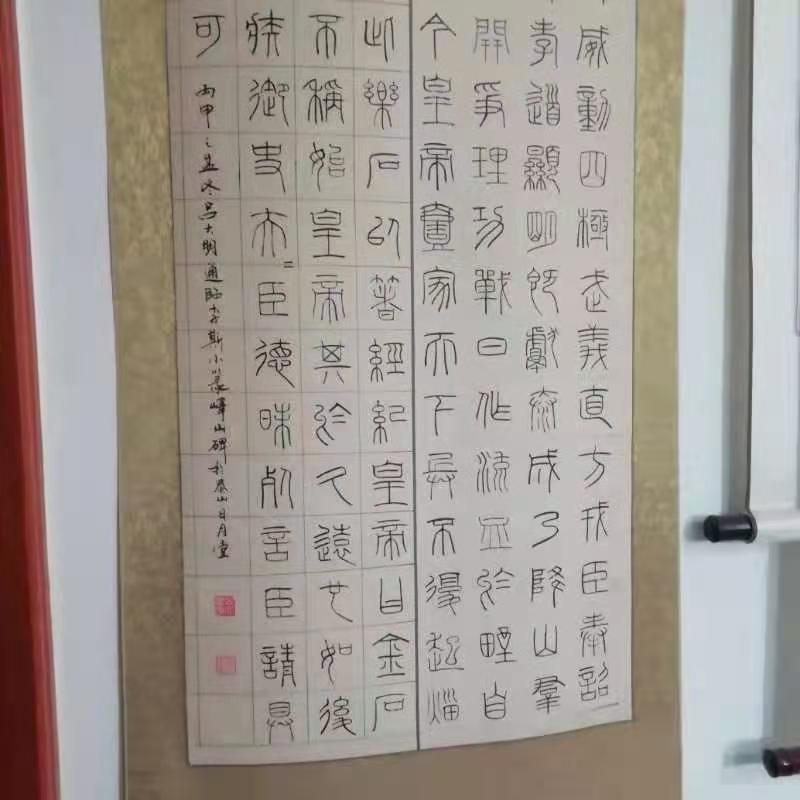 威動四極武義直方戎臣奉詔
孝道顯明既獻泰成乃降山羣
開爭理功戰日作流血於野自
今皇帝壹家天下兵不復起災
此樂石以著經紀皇帝曰金石
不稱始皇帝其於久遠也如後
疾御史夫=臣德昧死言臣請具
可
丙申之孟冬吕大明通臨李斯小篆嶧山碑於泰山日月堂